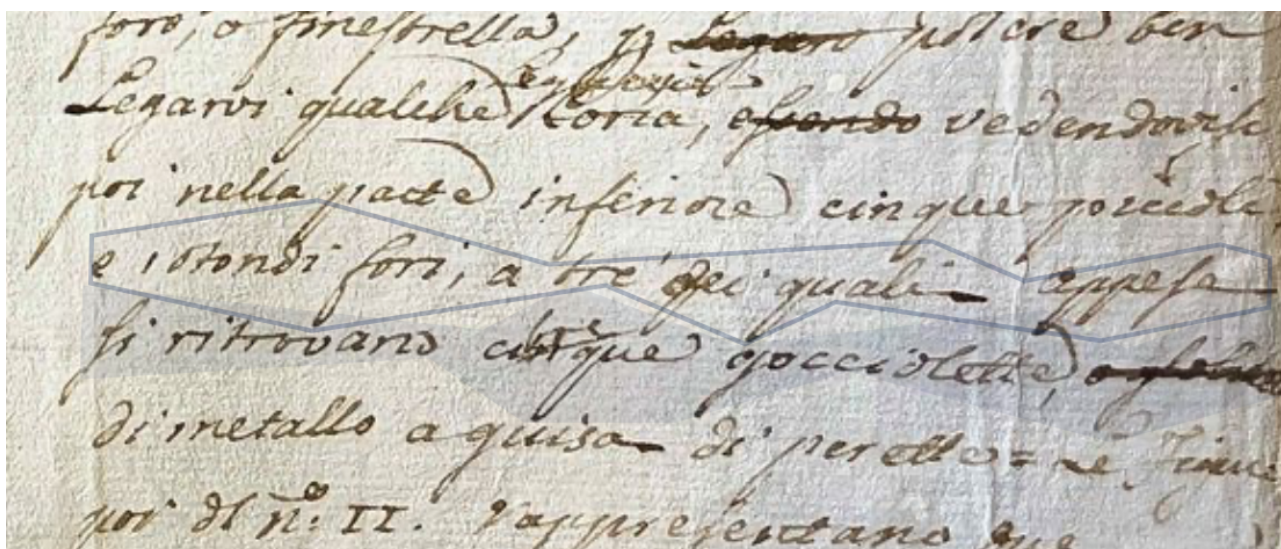 foro, o finestrella, p Legare potere ben
Legarvi qualche Coria, essendo vedendovisi
poi nella parte inferiore cinque piccoli
e rotondi fori, a tre dei quali appese
si ritrovano cinque tre gocciolette,
di metallo a guisa di perette = Le
poi del n.º II. rappresentano due